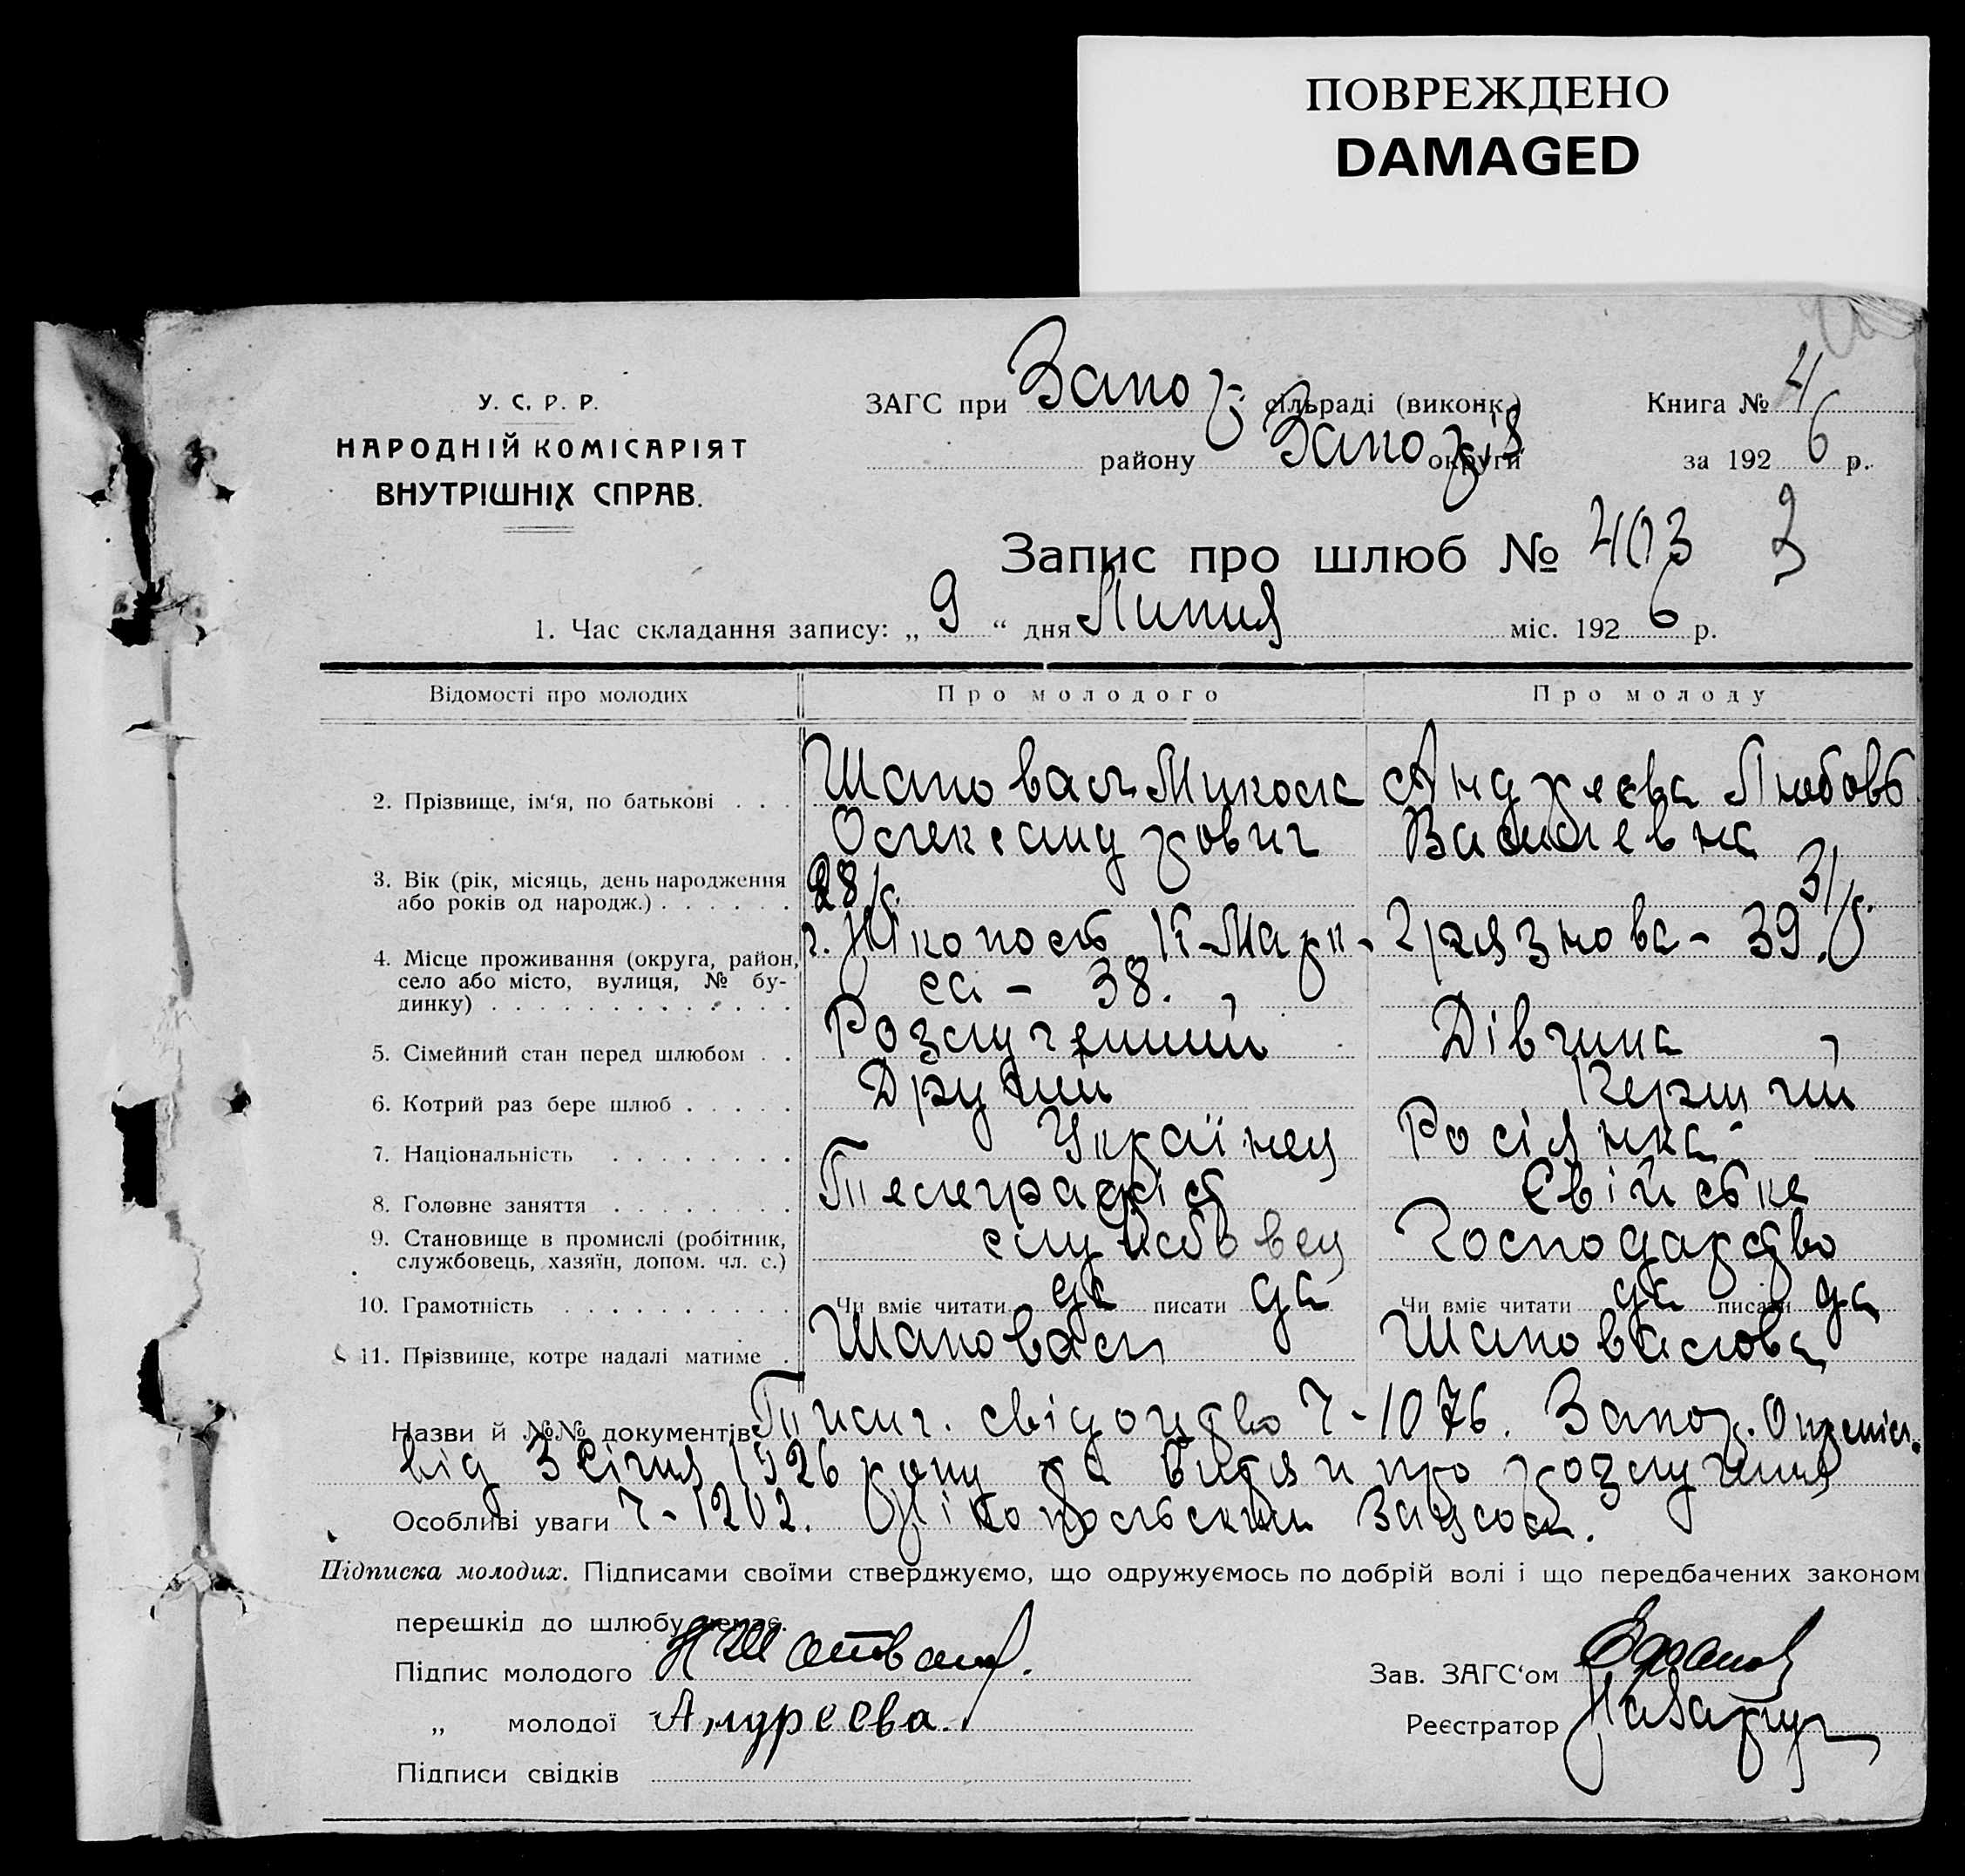 ПОВРЕЖДЕНО
DAMAGED
У. С. Р. Р.
НАРОДНІЙ КОМІСАРІЯТ
ВНУТРІШНІХ СПРАВ.
ЗАГС при Запор. сільраді (виконк.)
району Запоріз округи
Книга № 4
за 1926 р.
Запис про шлюб № 403
1. Час складання запису: „9“ дня Липня міс. 1926 р.
Відомості про молодих Про молодого Про молоду
2. Прізвище, ім'я, по батькові . . . Шаповал Микола Андреєва Любовь
Олександрович Василевна
3. Вік (рік, місяць, день народження
або років од народж.) . . . . . . 28 р. 31 р.
4. Місце проживання (округа, район, г. Нікополь К-Марк- Грязнова - 39.
село або місто, вулиця, № бу- са - 38.
динку) . . . . . . . . . . . . .
5. Сімейний стан перед шлюбом . . Розлучений Дівчина
6. Котрий раз бере шлюб . . . . . Другий Перший
7. Національність . . . . . . . . Українец Росіянка
8. Головне заняття . . . . . . . . Телеграфіст Свійське
9. Становище в промислі (робітник, службовец Господарство
службовець, хазяїн, допом. чл. с.)
10. Грамотність . . . . . . . . . . Чи вміє читати да писати да Чи вміє читати да писати да
11. Прізвище, котре надалі матиме . Шаповал Шаповалова
Назви й №№ документів Тимч. свідоцтво Ч-1076. Запор.
від 3 січня 1926 року та витяг про розлучення
Особливі уваги Ч-1202. Нікопольским Загсом.
Підписка молодих. Підписами своїми стверджуємо, що одружуємось по добрій волі і що передбачених законом
перешкід до шлюбу немає.
Підпис молодого Н Шаповал.
Зав. ЗАГС'ом
„ молодої Андреева.
Реєстратор
Підписи свідків